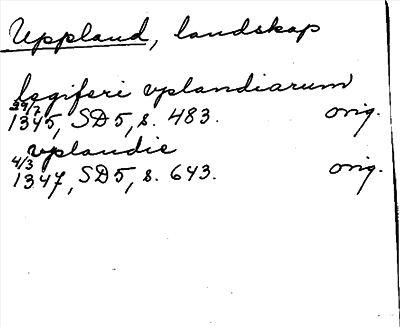 Uppland, landskap
legiferi vplandiarum
29/7 1345, SD5, s. 483. orig.
vplandie
4/3 1347, SD5, s. 643. orig.